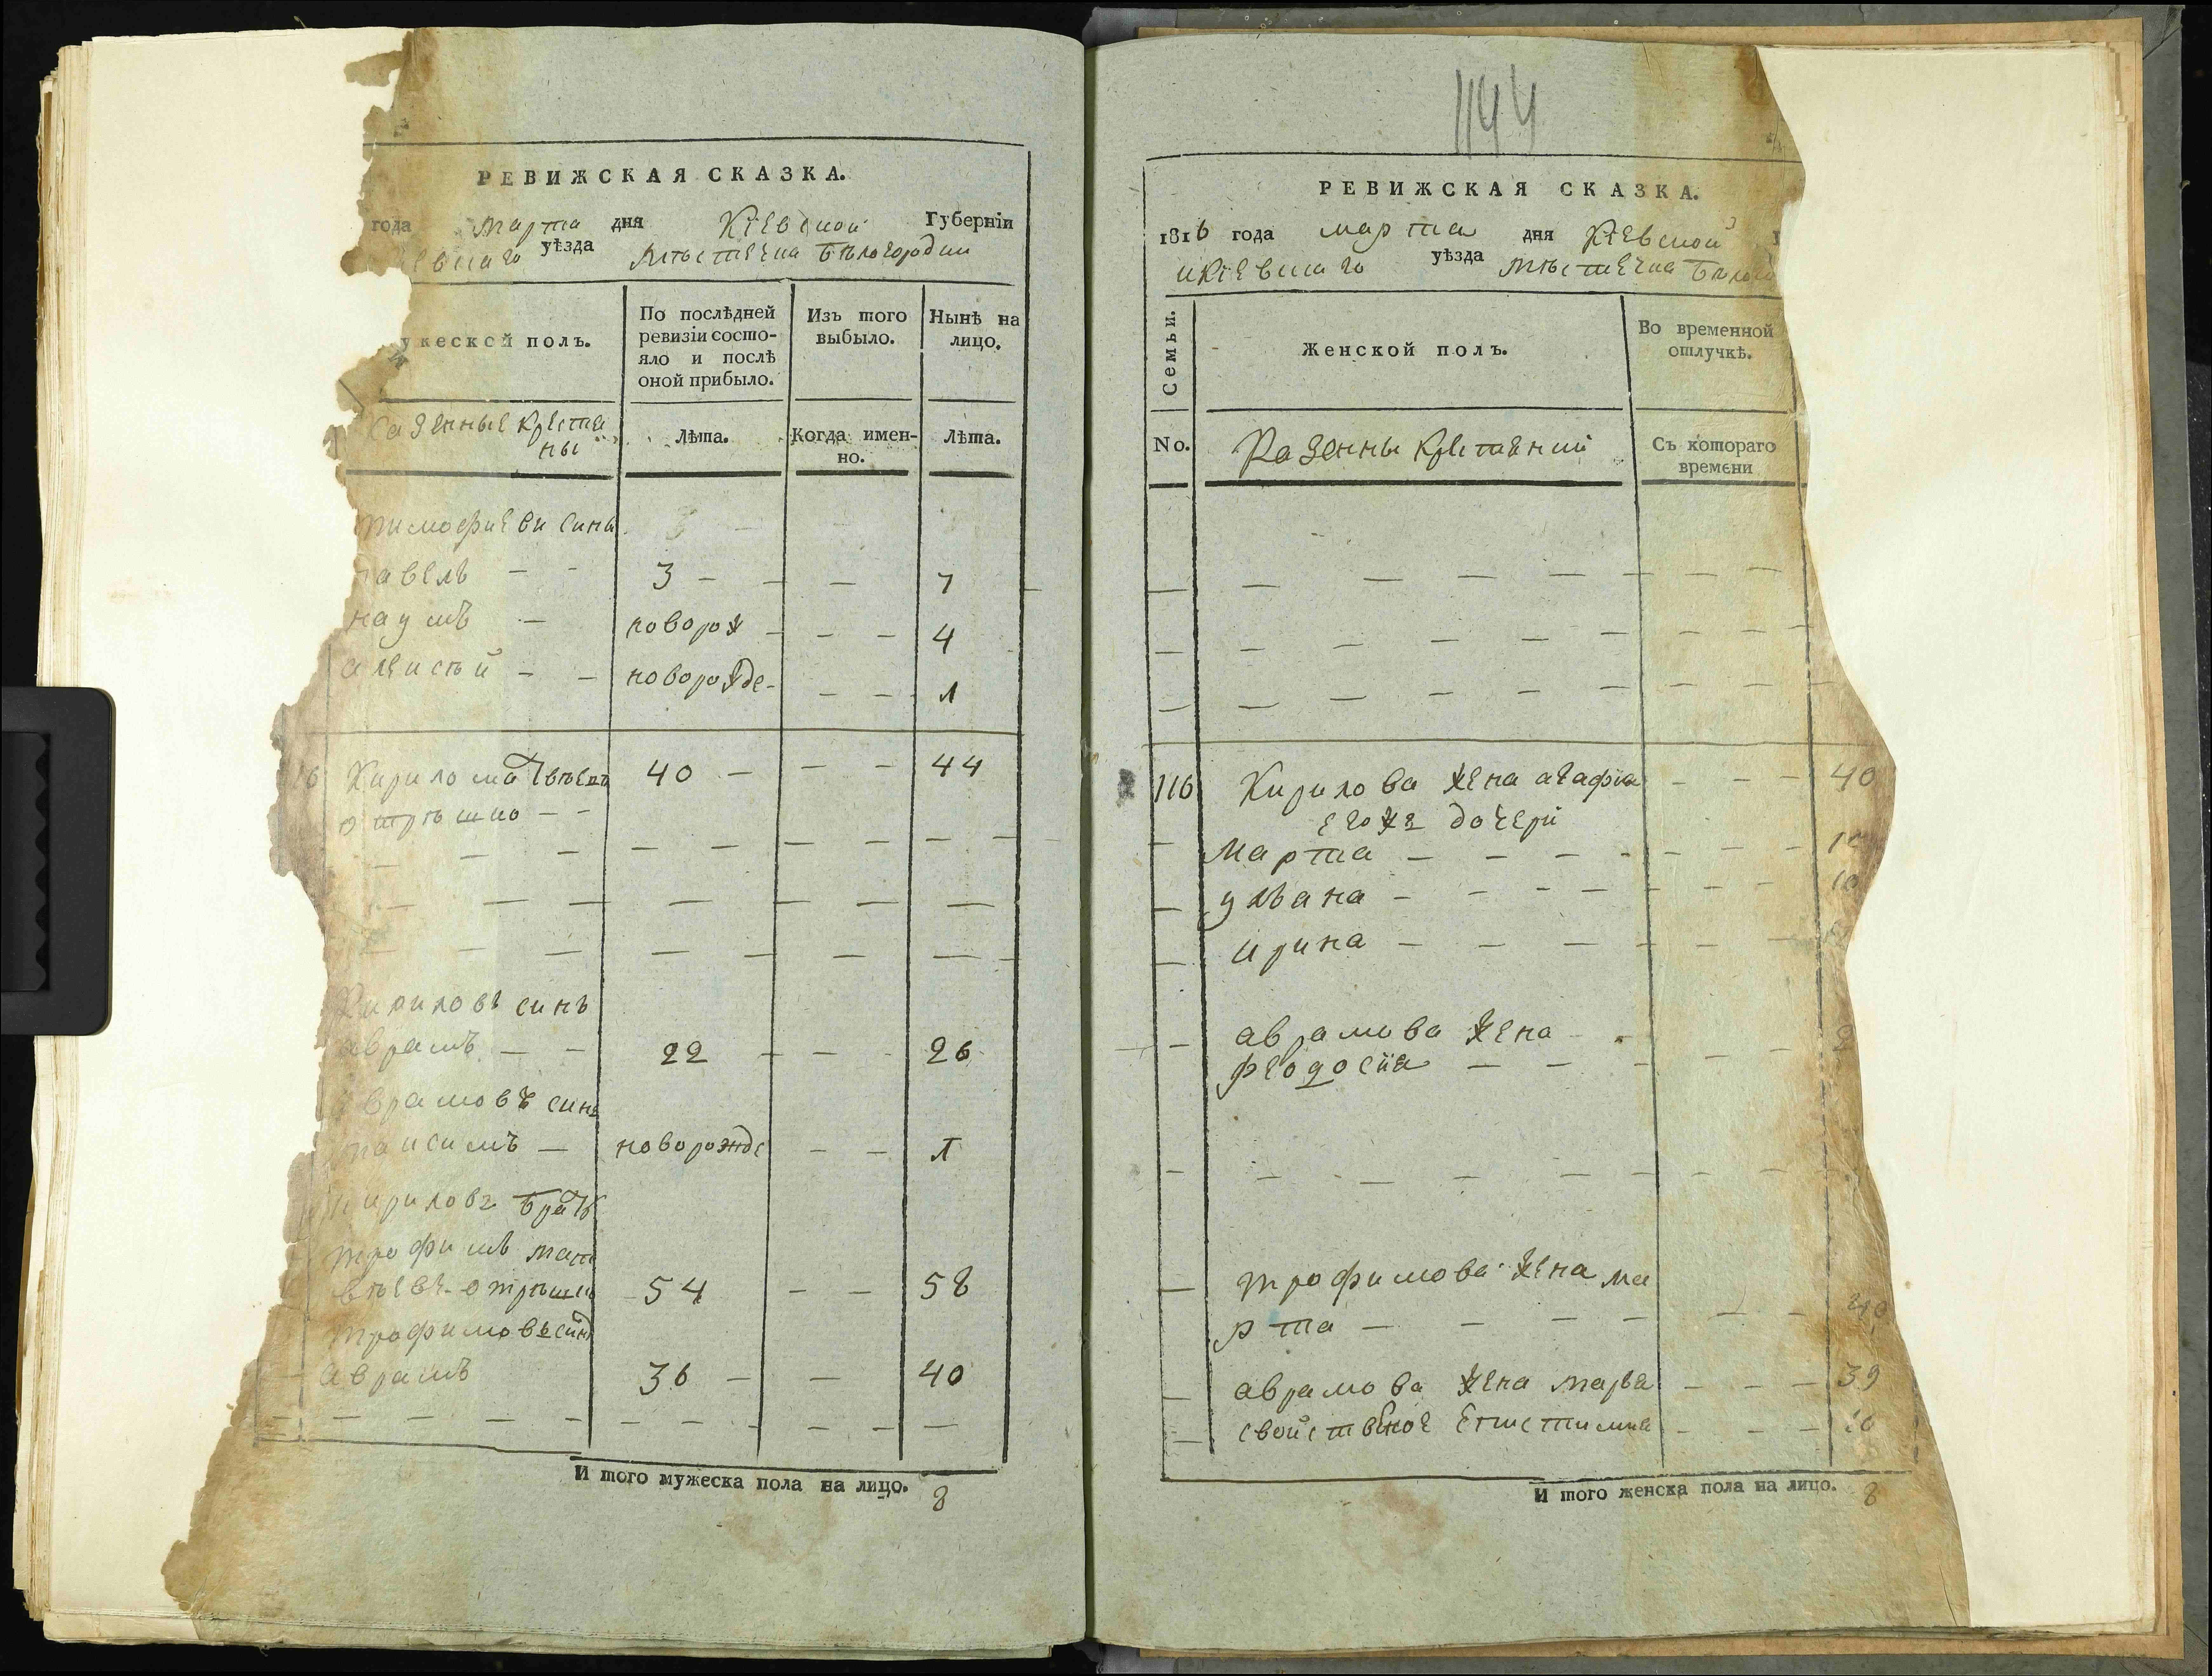 РЕВИЖСКАЯ СКАЗКА.
года марта дня Кіевской Губерніи
уѣзда мѣстечка Бѣлогородки
полъ.
По послѣдней
ревизіи состо-
яло и послѣ
оной прибыло.
Изъ того
выбыло.
Нынѣ на
лицо.
Казенные кристия
ны
Лѣта.
Когда имен-
но.
Лѣта.
тимофиеви сины
павелъ - - 3 - - - 7
наумъ - новорож - - - 4
алеисѣй - - новорожде- - - 1
Кирило матвѣевъ 40 - - - - 44
отрѣшко - -
Кириловъ синъ
аврамъ - - 22 - - - 26
аврамовъ синъ
маисимъ - новорожде - - 1
кириловъ братъ
трофимъ мат
вѣевъ отрѣшко - 54 - - 58
трофимовъ синъ
аврамъ 36 - - 40
И того мужеска пола на лицо. 8
1144
РЕВИЖСКАЯ СКАЗКА.
1816 года марта дня Кіевской
икіевскаго уѣзда мѣстечка
Семьи.
Женской полъ.
Во временной
отлучкѣ.
No.
Казенны кристянки
Съ котораго
времени
116 Кирилова жена агафия - - - 40
егоже дочери
марта - - - - - - -
уляна - - - - - - -
ирина - - - - - -
аврамова жена - -
феодосия - - - - -
трофимова жена ма
рта - - - - - - -
аврамова жена маря - - - 39
свойственое епистимия - - -
И того женска пола на лицо. 8